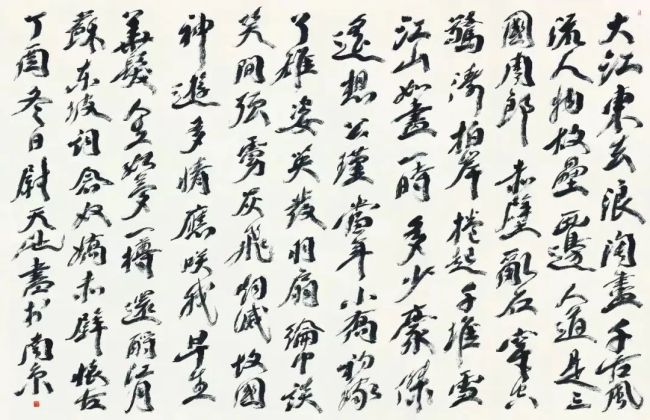 大江東去浪淘盡千古風
流人物故壘西邊人道是三
國周郎赤壁亂石穿空
驚濤拍岸捲起千堆雪
江山如畫一時多少豪傑
遙想公瑾當年小喬初嫁
了雄姿英發羽扇綸巾談
笑間强虜灰飛烟滅故國
神遊多情應咲我早生
華髮人生如夢一樽還酹江月
蘇東坡詞念奴嬌赤壁懷古
丁酉冬日尉天池書於南京